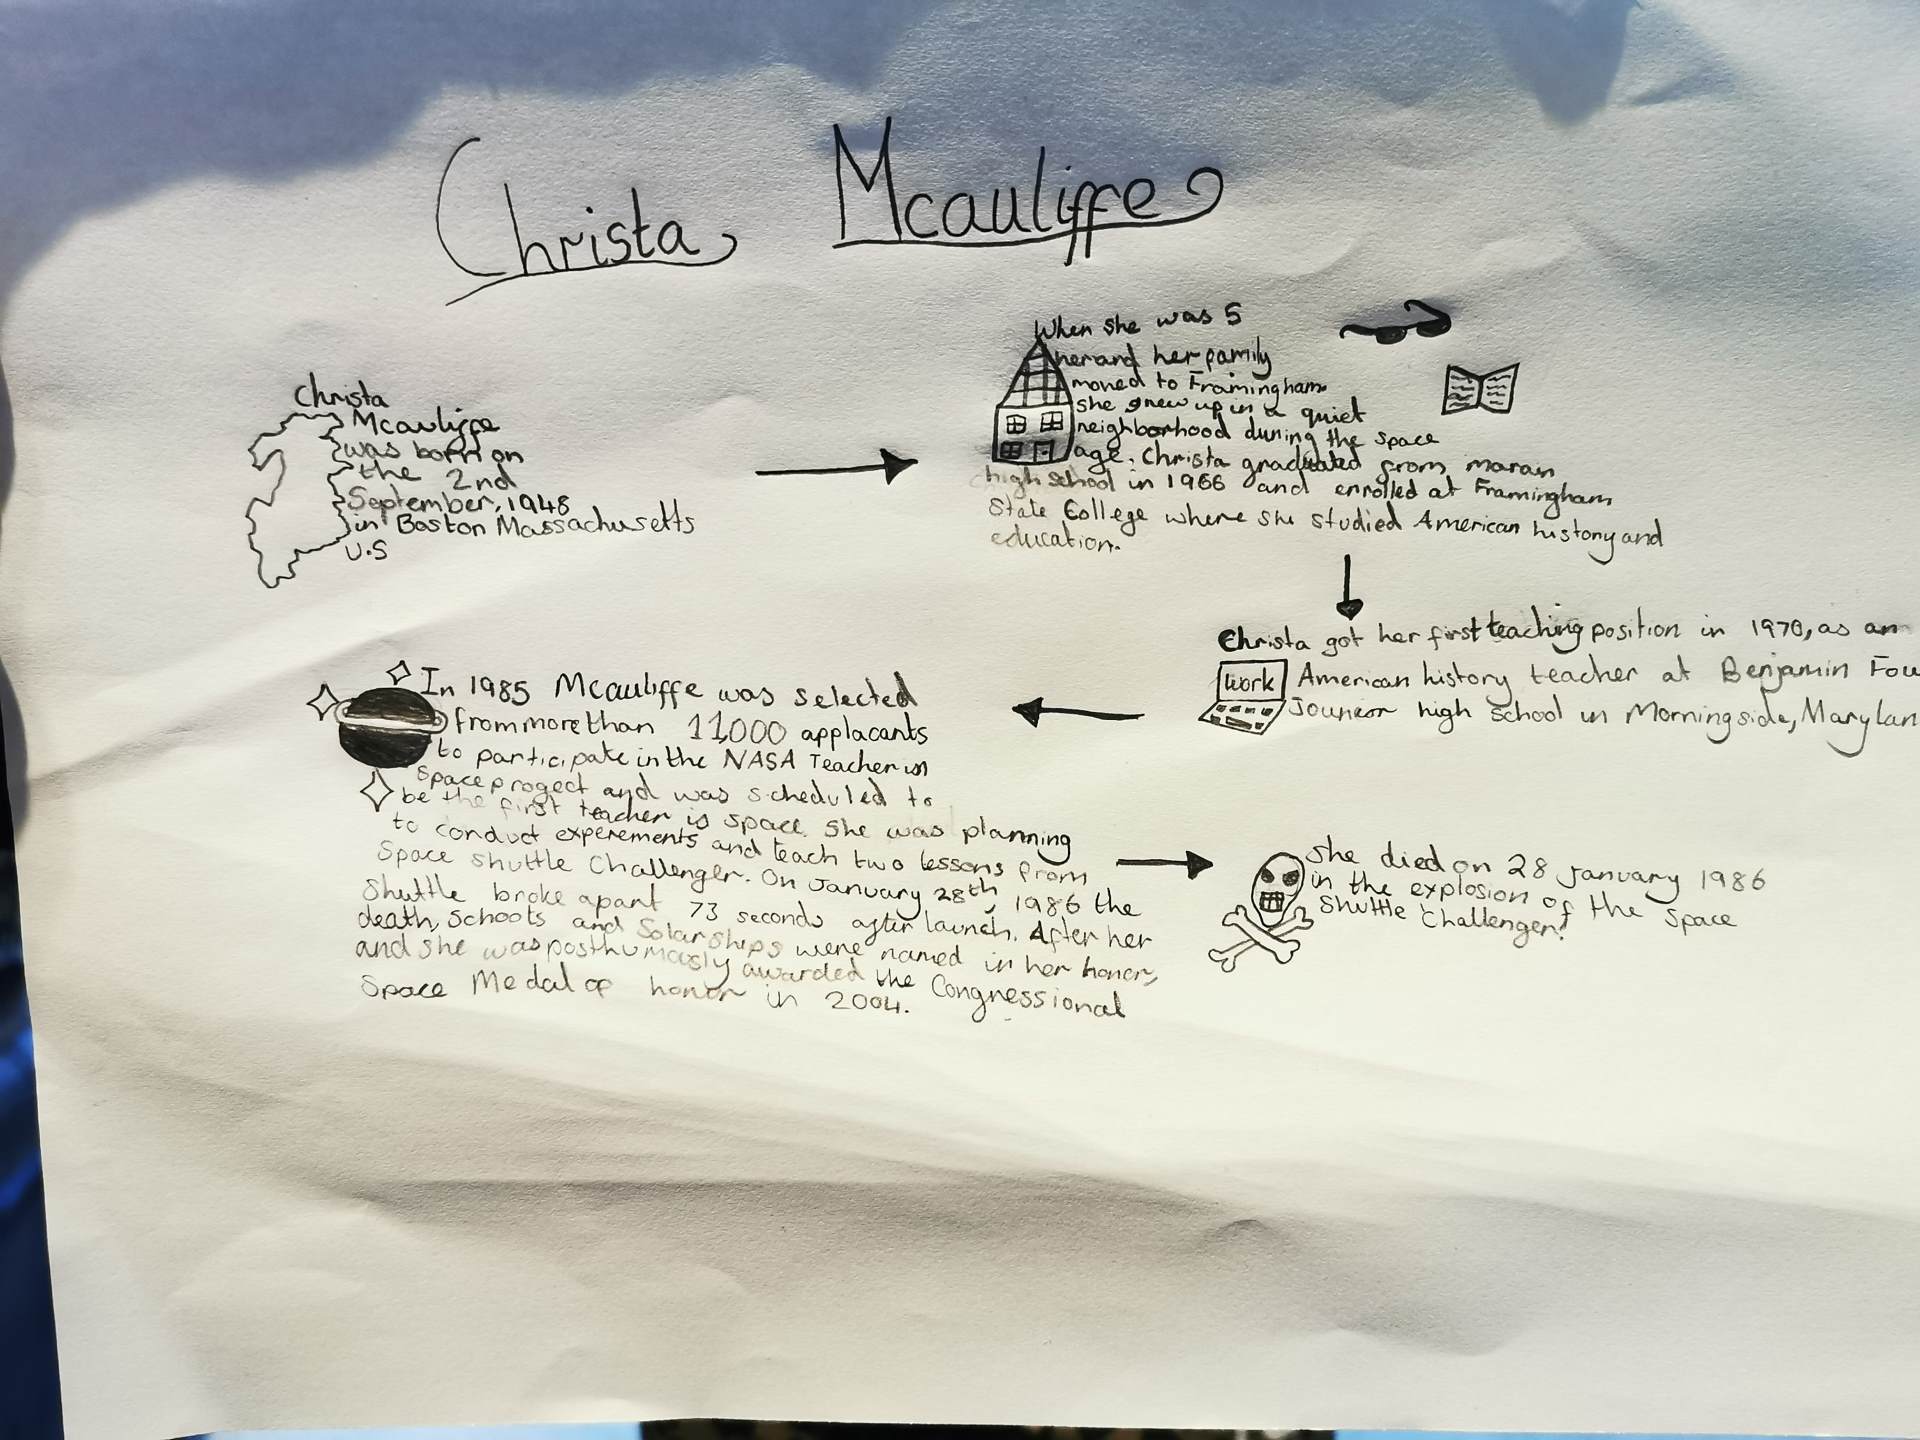 Christa Mcauliffe
Christa
Mcauliffe
was born on
the 2nd
September, 1948
in Boston Massachusetts
U.S
When she was 5
her and her family
moved to Framingham
she grew up in a quiet
neighborhood during the space
age. Christa graduated from marian
high school in 1966 and enrolled at Framingham
State College where she studied American history and
education.
Christa got her first teaching position in 1970, as an
Work
American history teacher at Benjamin Fou
Jounior high school in Morningside, Marylan
In 1985 Mcauliffe was selected
from more than 11,000 applacants
to participate in the NASA Teacher in
space progect and was scheduled to
be the first teacher is space. She was planning
to conduct experements and teach two lessons from
Space Shuttle Challenger. On January 28th, 1986 the
Shuttle broke apart 73 seconds after launch. After her
death, schools and Solarships were named in her honor,
and she was posthumously awarded the Congressional
Space Medal of honor in 2004.
She died on 28 January 1986
in the explosion of the Space
Shuttle Challenger!